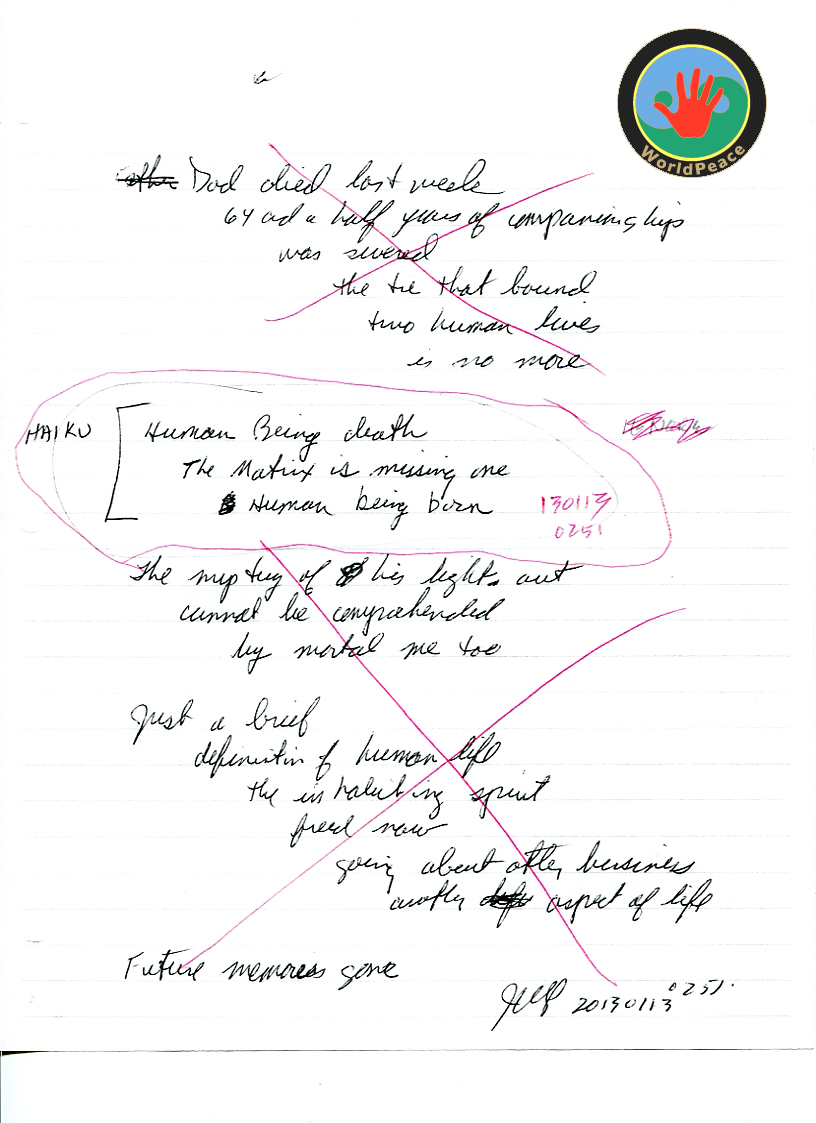 WorldPeace
Dad died last week
64 ad a half years of companionship
was severed
the tie that bound
two human lives
is no more
HAIKU
Human Being death
The Matrix is missing one
Human being born
130113
0251
The mystery of his lights out
cannot be comprehended
by mortal me too
Just a brief
definition of human life
the inhabiting spirit
freed now
going about other business
another aspect of life
Future memories gone
20130113 0251.